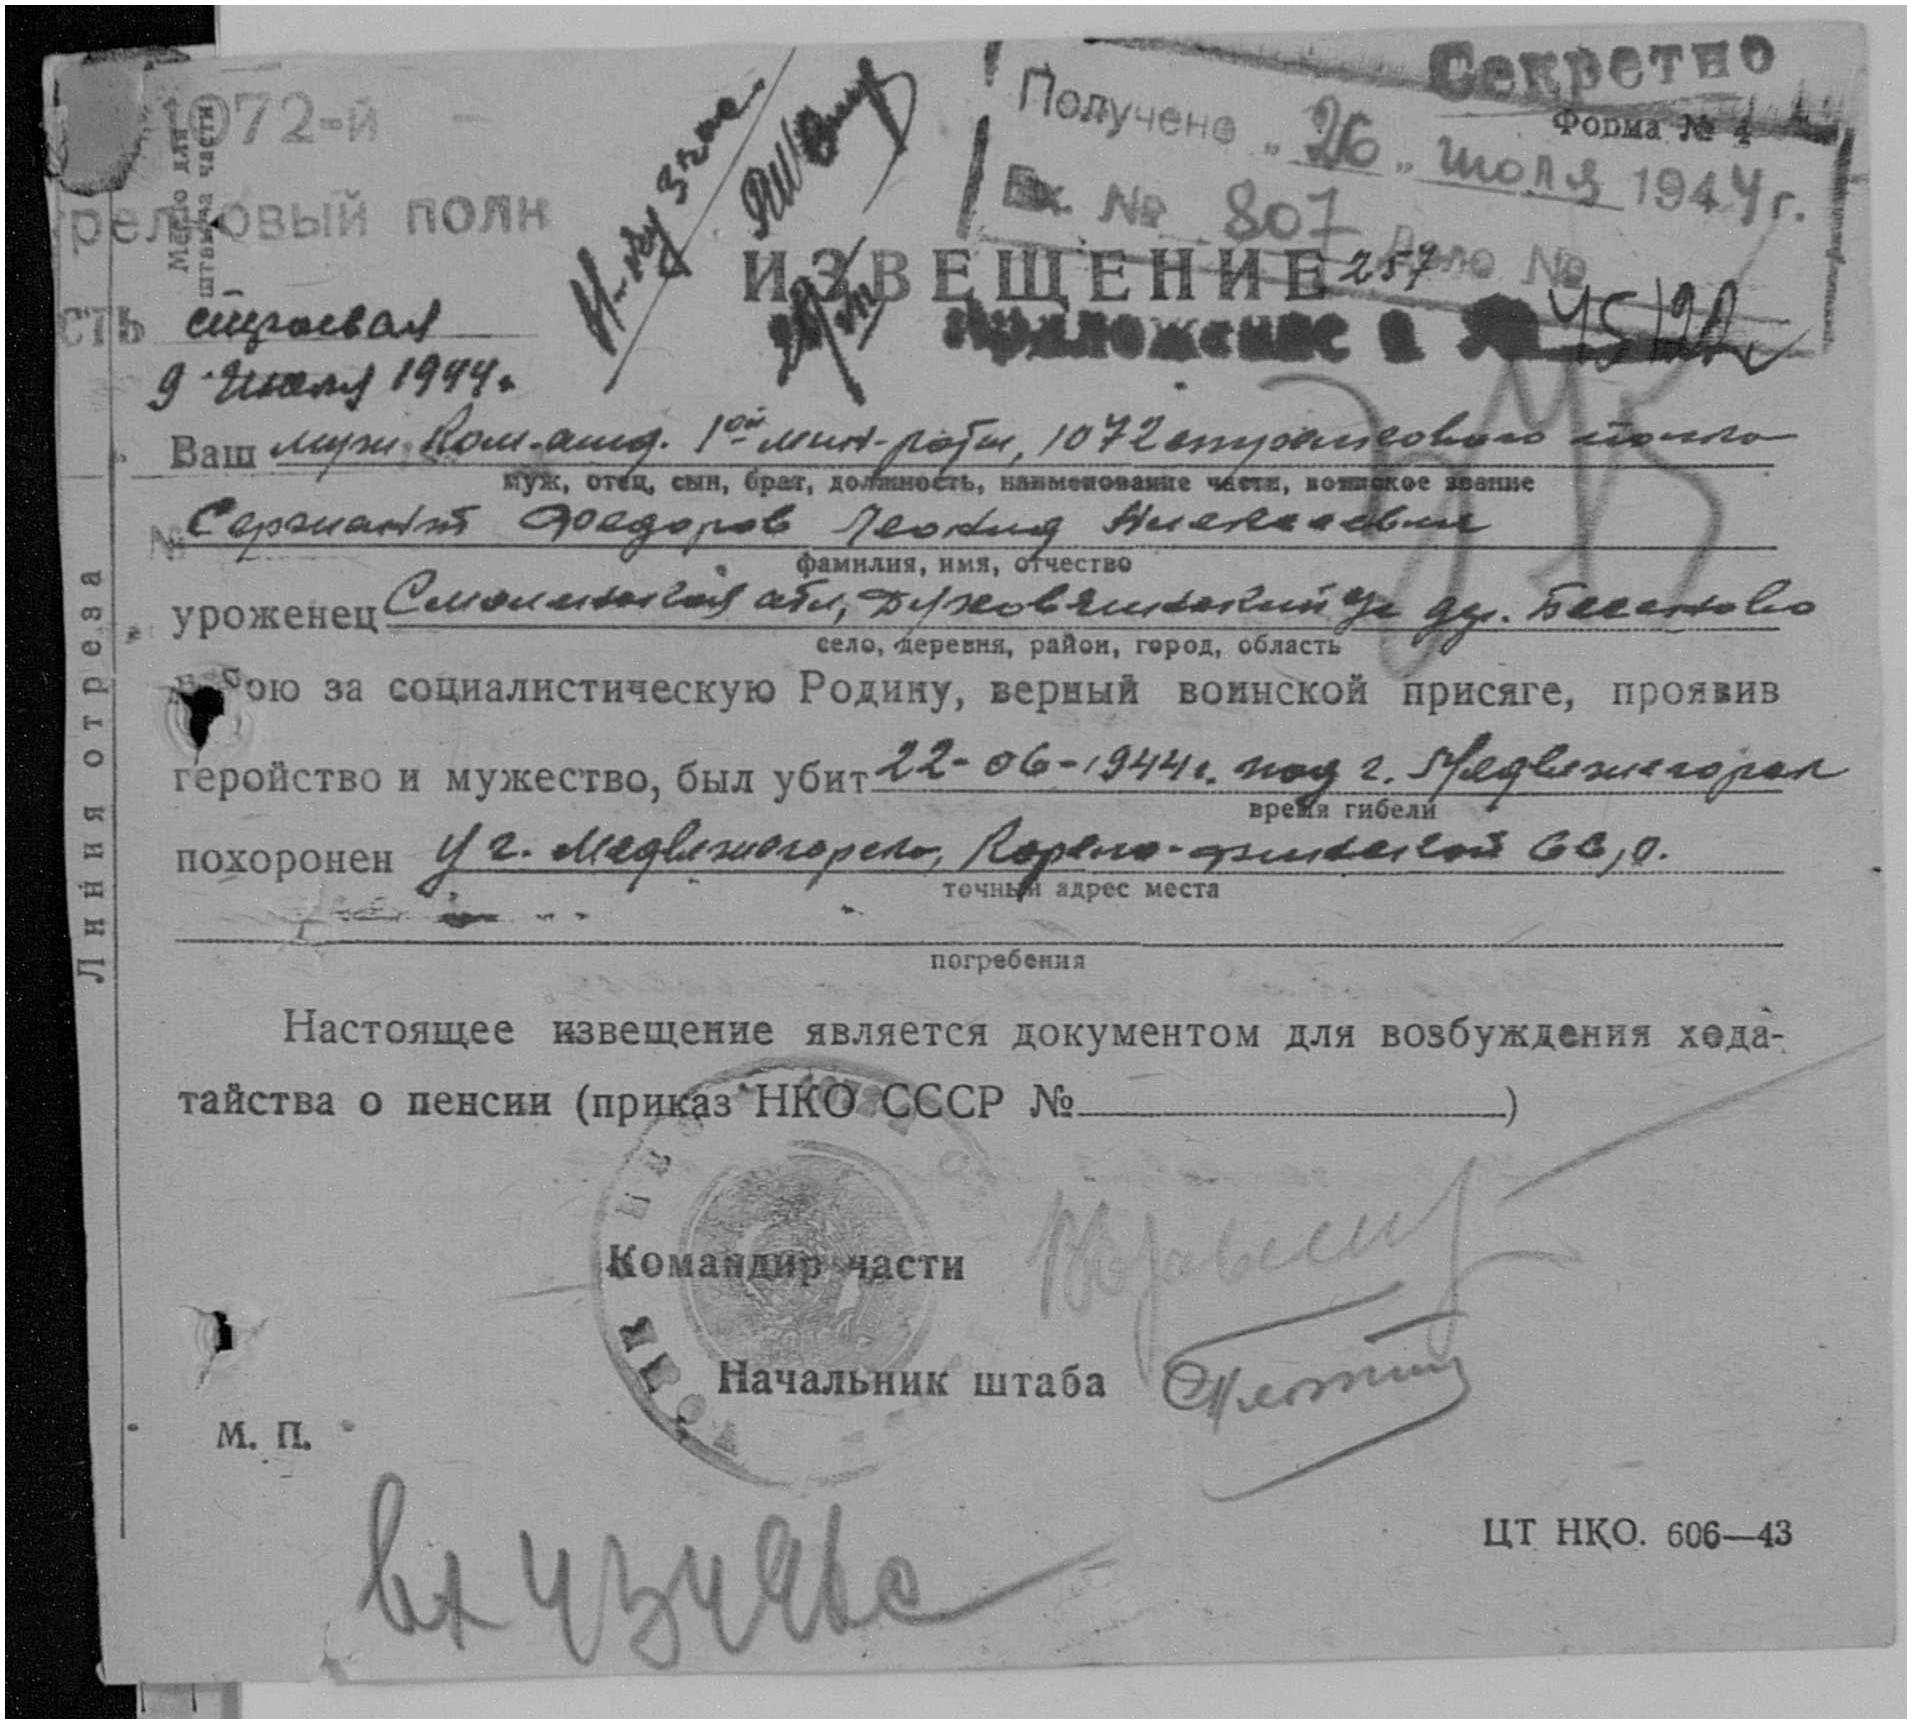 Секретно
Форма № 4
Получено „ 26 „ июля 1944 г.
Вх. № 807 Дело №
Место для
штампа части
1072-й
релковый полк
сть
9 июля 1944 г.
ИЗВЕЩЕНИЕ 257
Приложение к
Ваш муж Ком. 1ой мин-роты, 1072 стрелкового полка
муж, отец, сын, брат, должность, наименование части, воинское звание
Сержант Федоров Леонид
фамилия, имя, отчество
уроженец Смоленской обл, Духовщинский дер.
село, деревня, район, город, область
в бою за социалистическую Родину, верный воинской присяге, проявив
геройство и мужество, был убит 22-06-1944 г. под г. Медвежегорск
время гибели
похоронен у г. Медвежегорска, Карело-финской ССР.
точный адрес места
погребения
Настоящее извещение является документом для возбуждения хода-
тайства о пенсии (приказ НКО СССР № )
Командир части
Начальник штаба
М. П.
ЦТ НКО. 606—43
Вх 43496с
Линия отреза